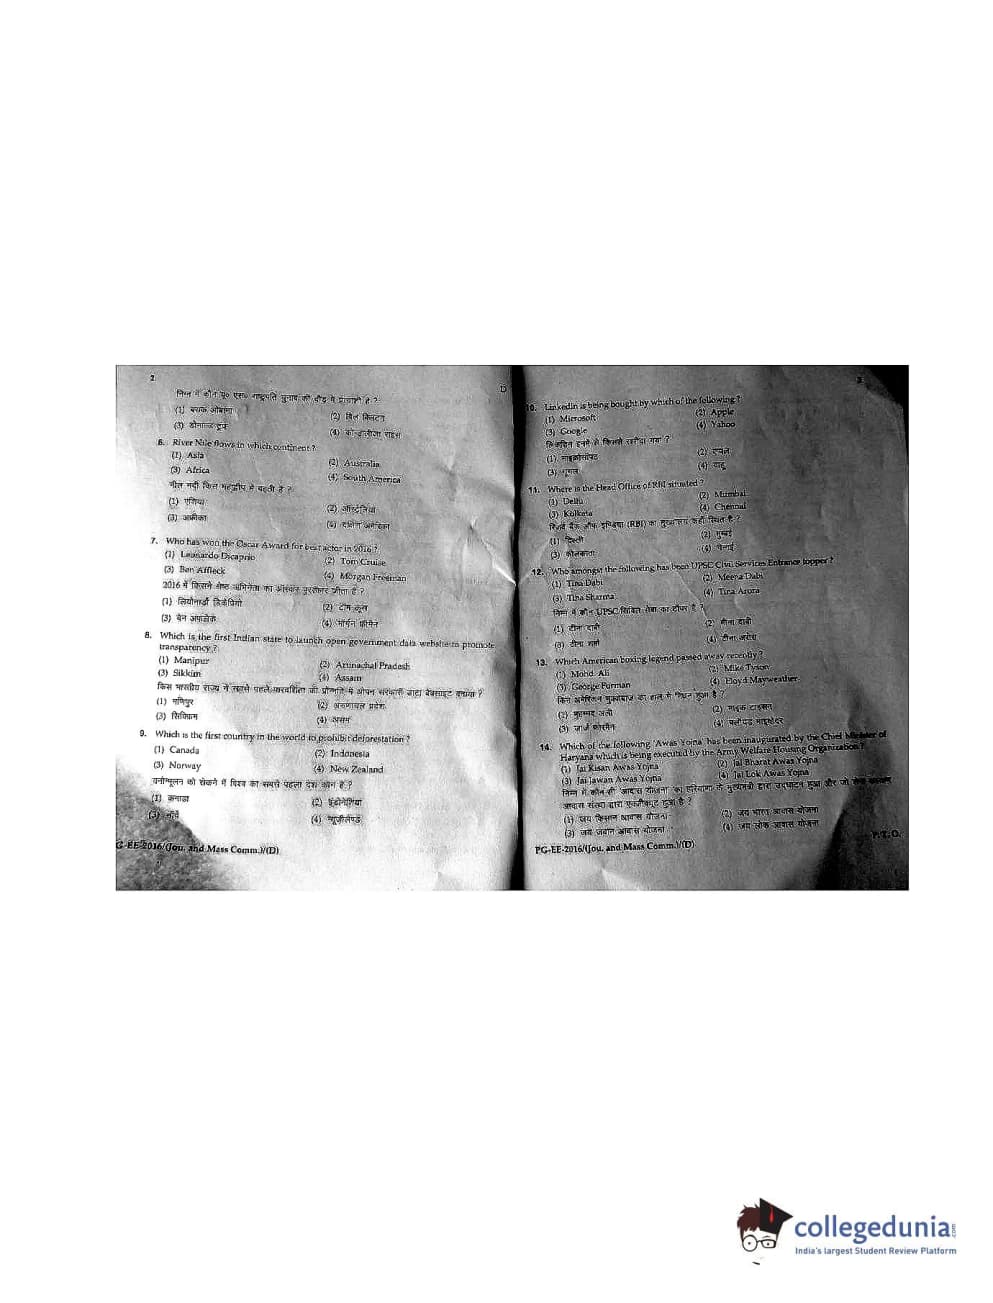 2
D
निम्न में कौन यू० एस० राष्ट्रपति चुनाव की दौड़ में प्रत्याशी है ?
(1) बराक ओबामा (2) बिल क्लिंटन
(3) डोनाल्ड ट्रम्प (4) कोन्डोलीजा राइस
6. River Nile flows in which continent ?
(1) Asia (2) Australia
(3) Africa (4) South America
नील नदी किस महाद्वीप में बहती है ?
(1) एशिया (2) ऑस्ट्रेलिया
(3) अफ्रीका (4) दक्षिण अमेरिका
7. Who has won the Oscar Award for best actor in 2016 ?
(1) Leonardo Dicaprio (2) Tom Cruise
(3) Ben Affleck (4) Morgan Freeman
2016 में किसने श्रेष्ठ अभिनेता का ऑस्कर पुरस्कार जीता है ?
(1) लियोनार्डो डिकैप्रियो (2) टॉम क्रूस
(3) बेन अफलेक (4) मॉर्गन फ्रीमैन
8. Which is the first Indian state to launch open government data website to promote
transparency ?
(1) Manipur (2) Arunachal Pradesh
(3) Sikkim (4) Assam
किस भारतीय राज्य ने सबसे पहले पारदर्शिता की प्रोन्नति में ओपन सरकारी डाटा वेबसाइट बनाया ?
(1) मणिपुर (2) अरुणाचल प्रदेश
(3) सिक्किम (4) असम
9. Which is the first country in the world to prohibit deforestation ?
(1) Canada (2) Indonesia
(3) Norway (4) New Zealand
वनोन्मूलन को रोकने में विश्व का सबसे पहला देश कौन है ?
(1) कनाडा (2) इंडोनेशिया
(3) नार्वे (4) न्यूज़ीलैण्ड
G-EE-2016/(Jou. and Mass Comm.)/(D)
3
10. LinkedIn is being bought by which of the following ?
(1) Microsoft (2) Apple
(3) Google (4) Yahoo
लिंकडिन इनमें से किसने खरीदा गया ?
(1) माइक्रोसॉफ्ट (2) एप्पल
(3) गूगल (4) याहू
11. Where is the Head Office of RBI situated ?
(1) Delhi (2) Mumbai
(3) Kolkata (4) Chennai
रिजर्व बैंक ऑफ इण्डिया (RBI) का मुख्यालय कहाँ स्थित है ?
(1) दिल्ली (2) मुम्बई
(3) कोलकाता (4) चेन्नई
12. Who amongst the following has been UPSC Civil Services Entrance topper ?
(1) Tina Dabi (2) Meena Dabi
(3) Tina Sharma (4) Tina Arora
निम्न में कौन UPSC सिविल सेवा का टॉपर है ?
(1) टीना दाबी (2) मीना दाबी
(3) टीना शर्मा (4) टीना अरोरा
13. Which American boxing legend passed away recently ?
(1) Mohd. Ali (2) Mike Tyson
(3) George Furman (4) Floyd Mayweather
किस अमेरिकन मुक्काबाज का हाल में निधन हुआ है ?
(2) मुहम्मद अली (2) माइक टाइसन
(3) जार्ज फोरमैन (4) फ्लॉयड माइवेदर
14. Which of the following 'Awas Yojna' has been inaugurated by the Chief Minister of
Haryana which is being executed by the Army Welfare Housing Organization ?
(1) Jai Kisan Awas Yojna (2) Jai Bharat Awas Yojna
(3) Jai Jawan Awas Yojna (4) Jai Lok Awas Yojna
निम्न में कौन-सी 'आवास योजना' का हरियाणा के मुख्यमंत्री द्वारा उद्घाटन हुआ और जो सेना कल्याण
आवास संस्था द्वारा एक्जीक्यूट हुआ है ?
(1) जय किसान आवास योजना (2) जय भारत आवास योजना
(3) जय जवान आवास योजना (4) जय लोक आवास योजना
PG-EE-2016/(Jou. and Mass Comm.)/(D)
P.T.O.
collegedunia.com
India's largest Student Review Platform